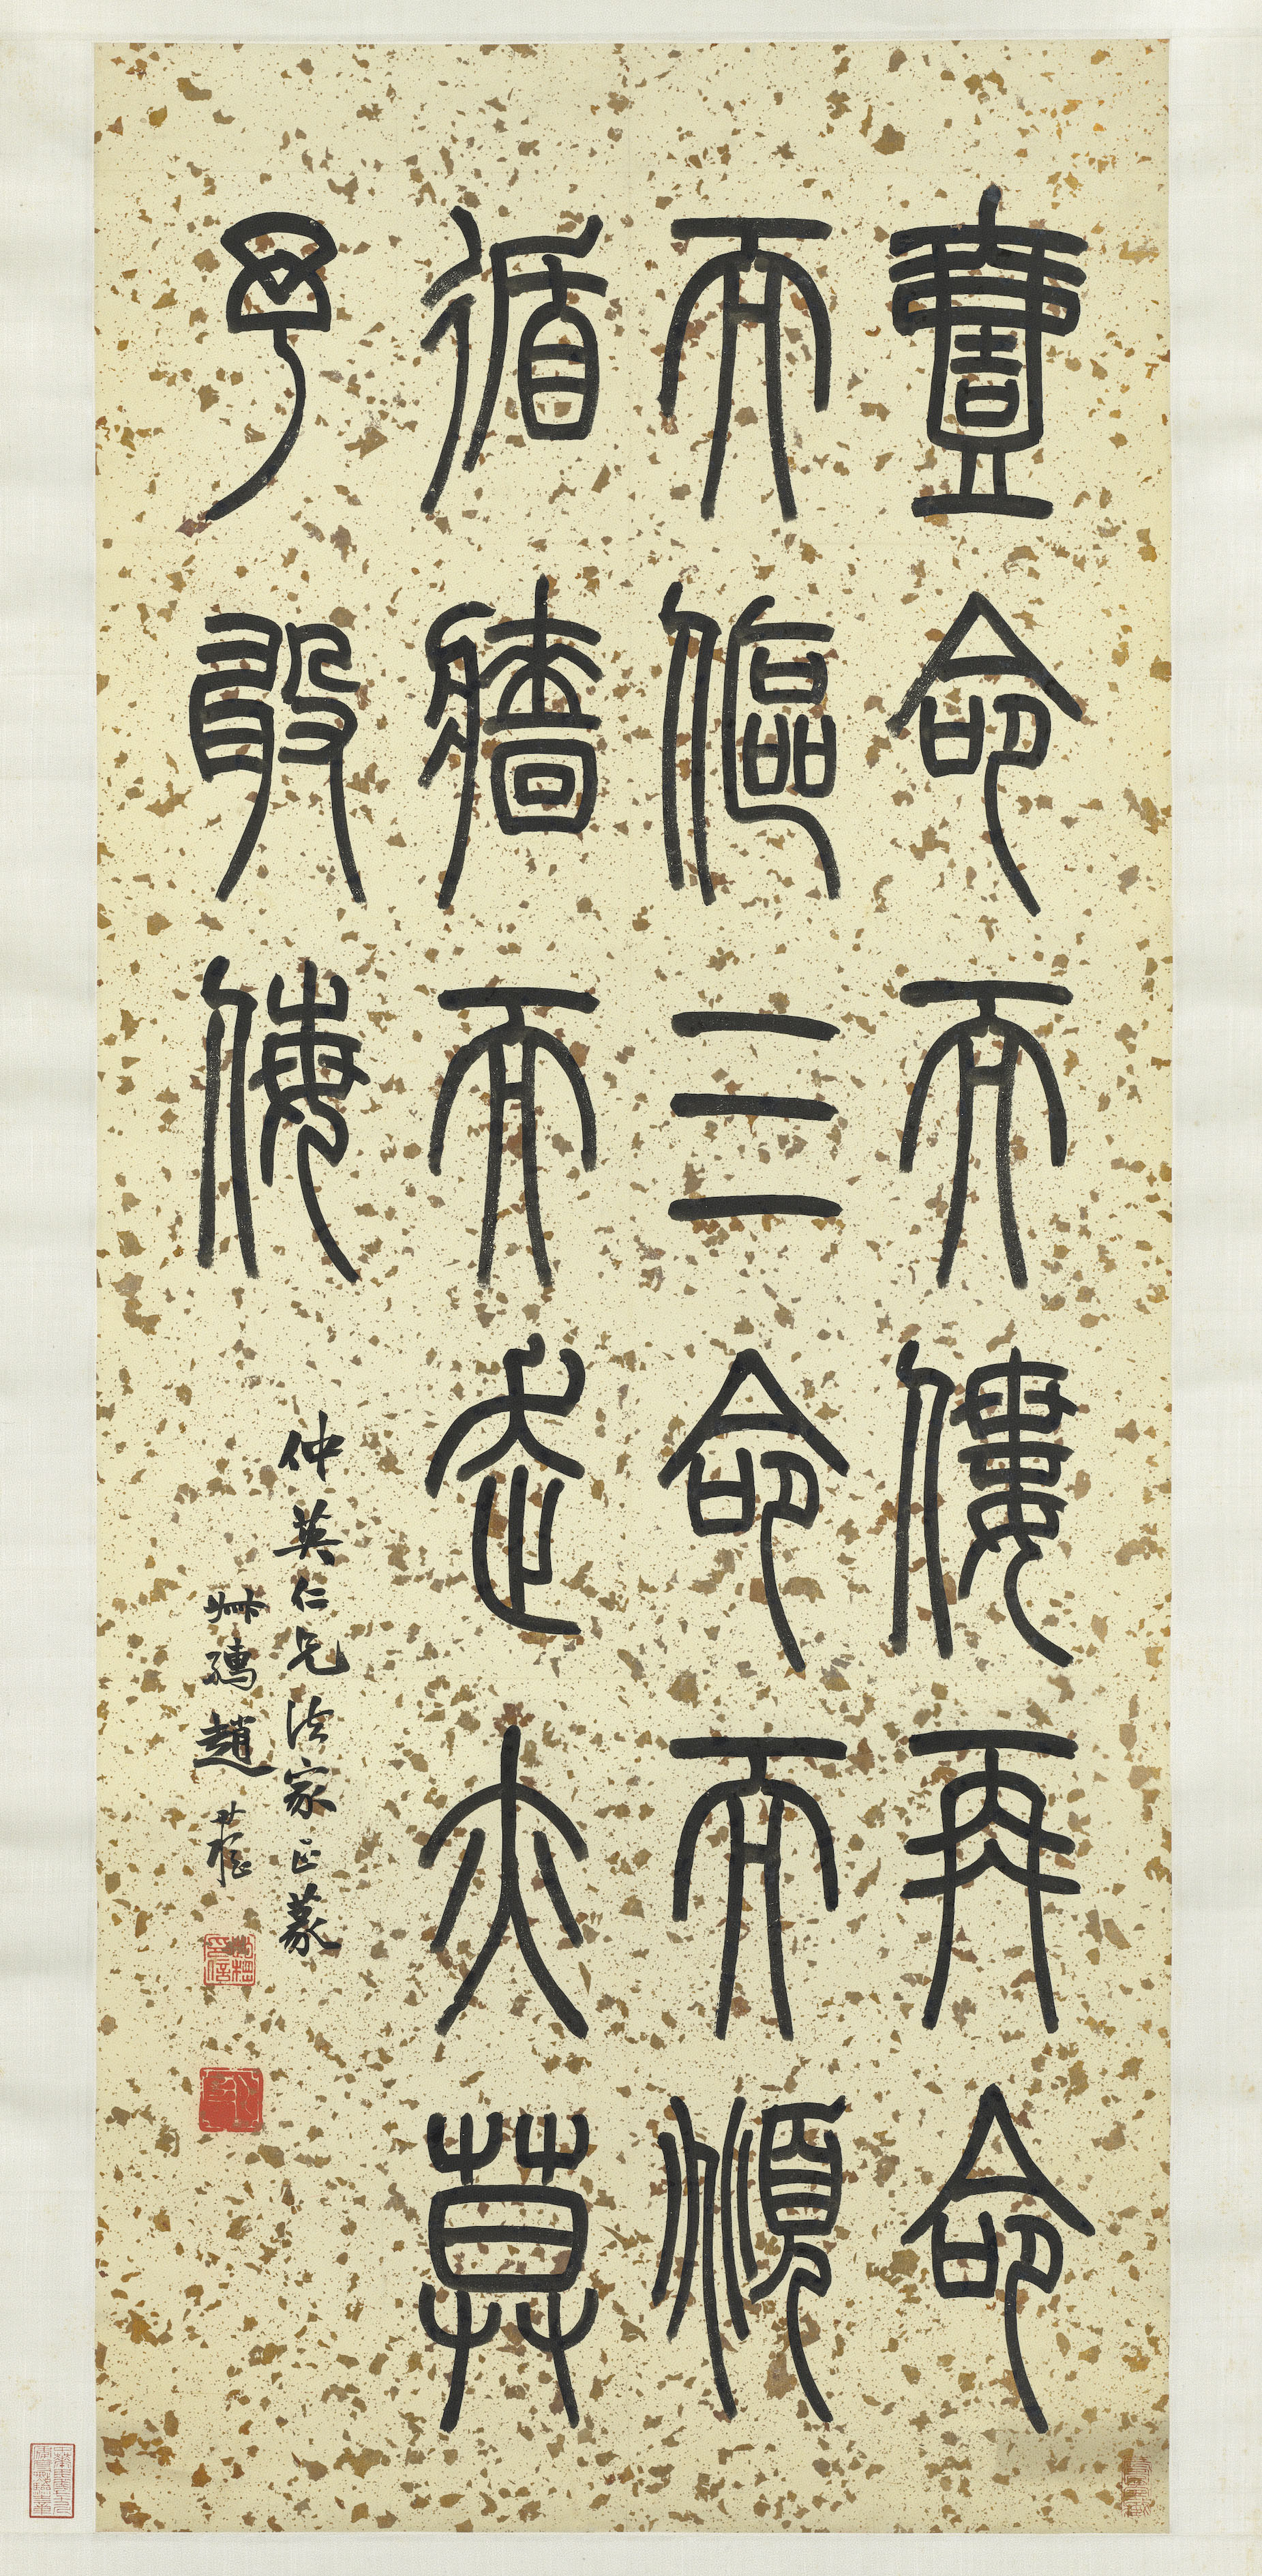 壹命而僂再命
而傴三命而頫
循牆而走亦莫
予敢侮
仲英仁兄法家正篆
叔孺趙時棡